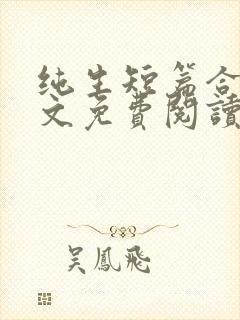 纯生短篇合
文免費閱讀
吴鳳飛